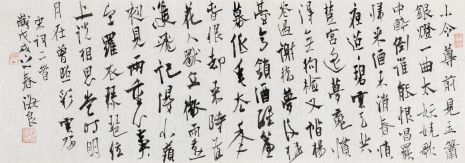 小令尊前見玉簫
銀燈一曲太妖嬈歌
中醉倒誰能恨唱罷
歸來酒未消春悄悄
夜迢迢碧雲天共
楚宮遙夢魂慣
得無拘檢又踏楊
花過謝橋夢後樓
臺高鎖酒醒簾
幕低垂去年
春恨却來時落
花人獨立微雨燕
雙飛記得小蘋
初見兩重心
字羅衣琵琶弦
上說相思當時明
月在曾照彩雲歸
宋詞二首
歲戊戌之春海良